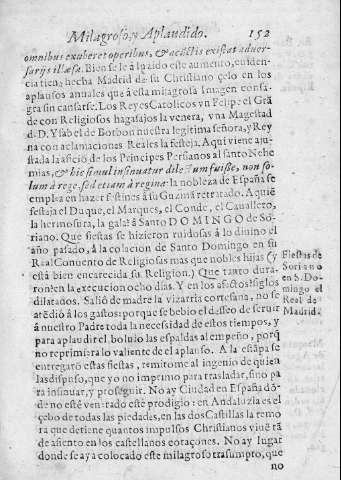 Milagroso, y Aplaudido. 152
omnibus exuberet operibus, & acceptis existat adver-
sarijs illæsa. Bien se le à luzido este aumento, evidẽn-
cia tiene, hecha Madrid de su Christiano çelo en los
aplausos annales que à esta milagrosa Imagen consa-
gra sin cansarse. Los Reyes Catolicos vn Felipe el Grã
de con Religiosos hagasajos la venera, vna Magestad
d. D. Ysabel de Borbon nuestra legitima señora, y Rey
na con aclamaciones Reales la festeja. Aqui viene aju-
stada la afició de los Principes Persianos al santo Nehe
mias, & hic simul insinuatur dilectum fuisse, non so-
lum à rege, sed etiam à regina: la nobleza de España se
emplea en hazer festines à su Guzmã retratado. Aquiẽ
festeja el Duque, el Marques, el Conde, el Cavallero,
la hermosura, la gala: à Santo DOMINGO de So-
riano. Que fiestas se hizieron ruidosas à lo divino el
año pasado, à la colacion de Santo Domingo en su
Real Convento de Religiosas mas que nobles hijas (y
està bien encarecida su Religion.) Que tanto dura-
ron! en la execucion ocho dias. Y en los afectos! siglos
dilatados. Saliò de madre la vizarria cortesana, no se
atẽdiò à los gastos: porque se bebio el deseo de servir
à nuestro Padre toda la necesidad de estos tiempos, y
para aplaudir el, bolviò las espaldas al empeño, porq̃
no reprimira lo valiente de el aplauso. A la estãpa se
entregarõ estas fiestas, remitome al ingenio de quien
las dispuso, que yo no imprimo para trasladar, sino pa
ra insinuar, y proseguir. No ay Ciudad en España dõ-
de no esté venerado este prodigio: en Andaluzia es el
çebo de todas las piedades, en las dos Castillas la remo
ra que detiene quantos impulsos Christianos vivẽ tã
de asiento en los castellanos coraçones. No ay lugar
donde se aya colocado este milagroso trasumpto, que
no
Fiestas de
Soriano
en S. Do-
mingo el
Real de
Madrid.